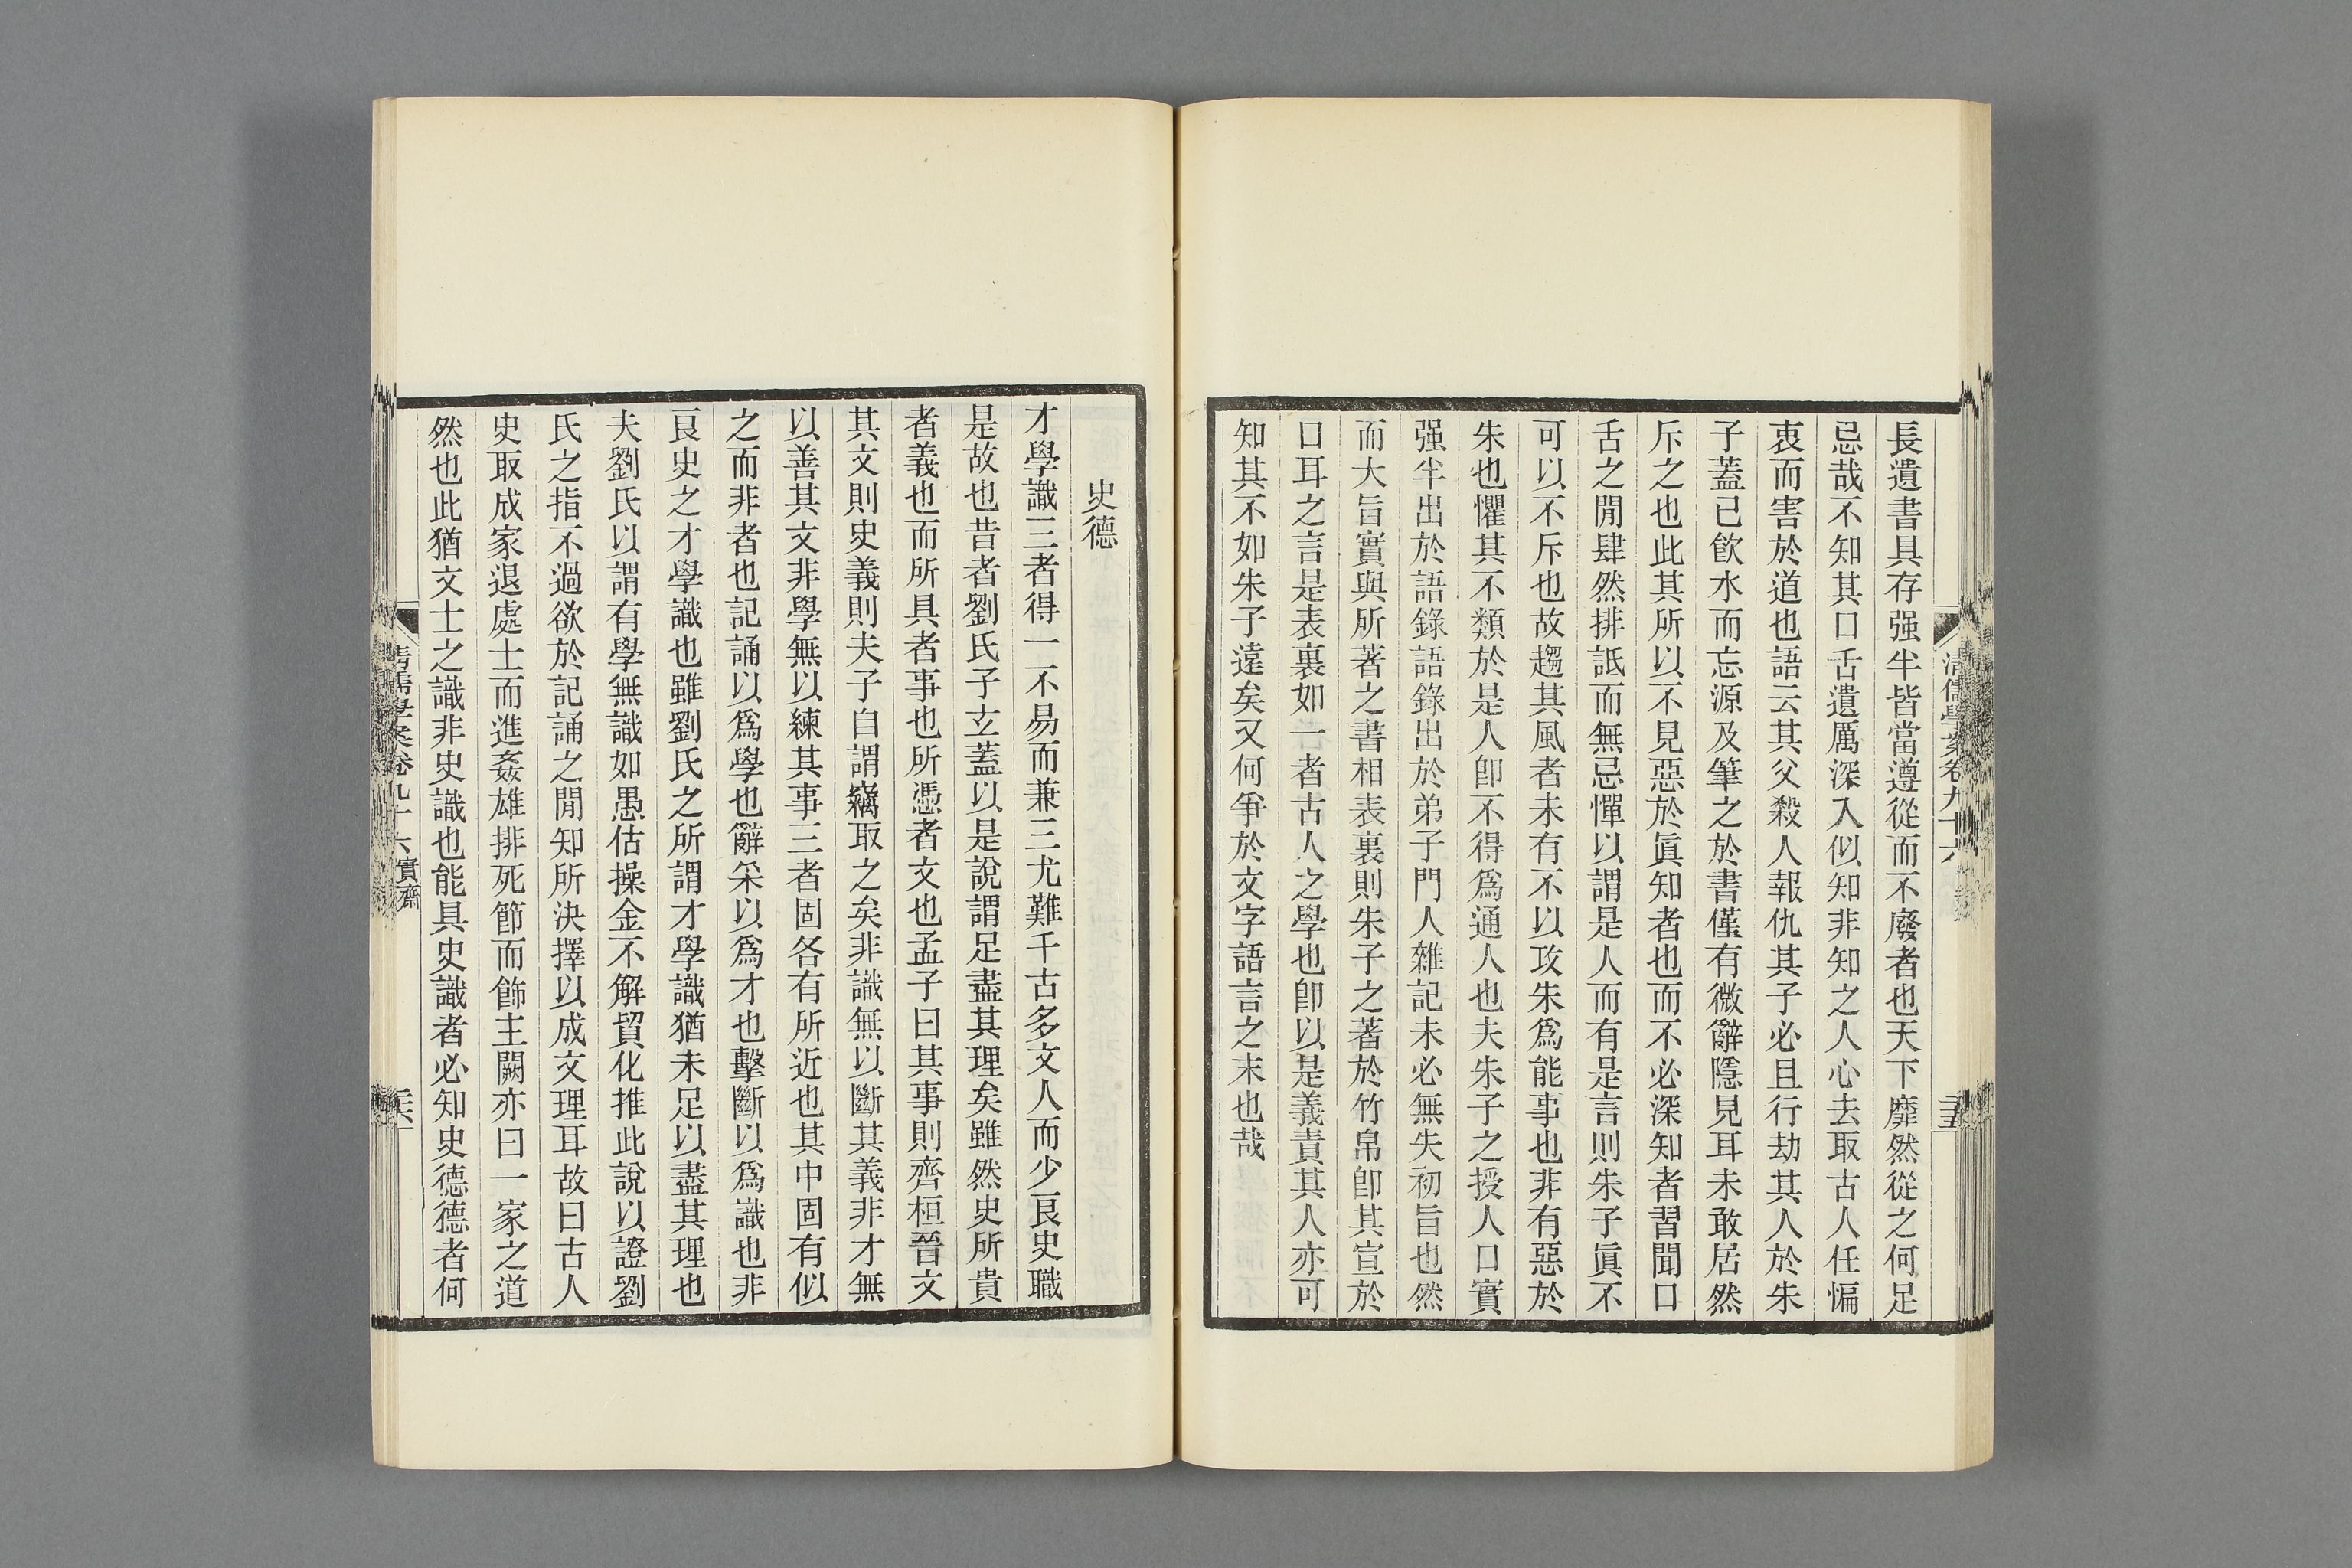 清儒學案卷九十六
二十五
長遺書具存强半皆當遵從而不廢者也天下靡然從之何足
忌哉不知其口舌遺厲深入似知非知之人心去取古人任惼
衷而害於道也語云其父殺人報仇其子必且行劫其人於朱
子蓋已飮水而忘源及筆之於書僅有微辭隱見耳未敢居然
斥之也此其所以不見惡於眞知者也而不必深知者習聞口
舌之閒肆然排詆而無忌憚以謂是人而有是言則朱子眞不
可以不斥也故趨其風者未有不以攻朱爲能事也非有惡於
朱也懼其不類於是人卽不得爲通人也夫朱子之授人口實
强半出於語錄語錄出於弟子門人雜記未必無失初旨也然
而大旨實與所著之書相表裏則朱子之著於竹帛卽其宣於
口耳之言是表裏如一者古人之學也卽以是義責其人亦可
知其不如朱子遠矣又何爭於文字語言之末也哉
史德
才學識三者得一不易而兼三尤難千古多文人而少良史職
是故也昔者劉氏子玄蓋以是說謂足盡其理矣雖然史所貴
者義也而所具者事也所憑者文也孟子曰其事則齊桓晉文
其文則史義則夫子自謂竊取之矣非識無以斷其義非才無
以善其文非學無以練其事三者固各有所近也其中固有似
之而非者也記誦以爲學也辭采以爲才也擊斷以爲識也非
良史之才學識也雖劉氏之所謂才學識猶未足以盡其理也
夫劉氏以謂有學無識如愚估操金不解貿化推此說以證劉
氏之指不過欲於記誦之閒知所決擇以成文理耳故曰古人
史取成家退處士而進姦雄排死節而飾主闕亦曰一家之道
然也此猶文士之識非史識也能具史識者必知史德德者何
清儒學案卷九十六 實齋
二十六